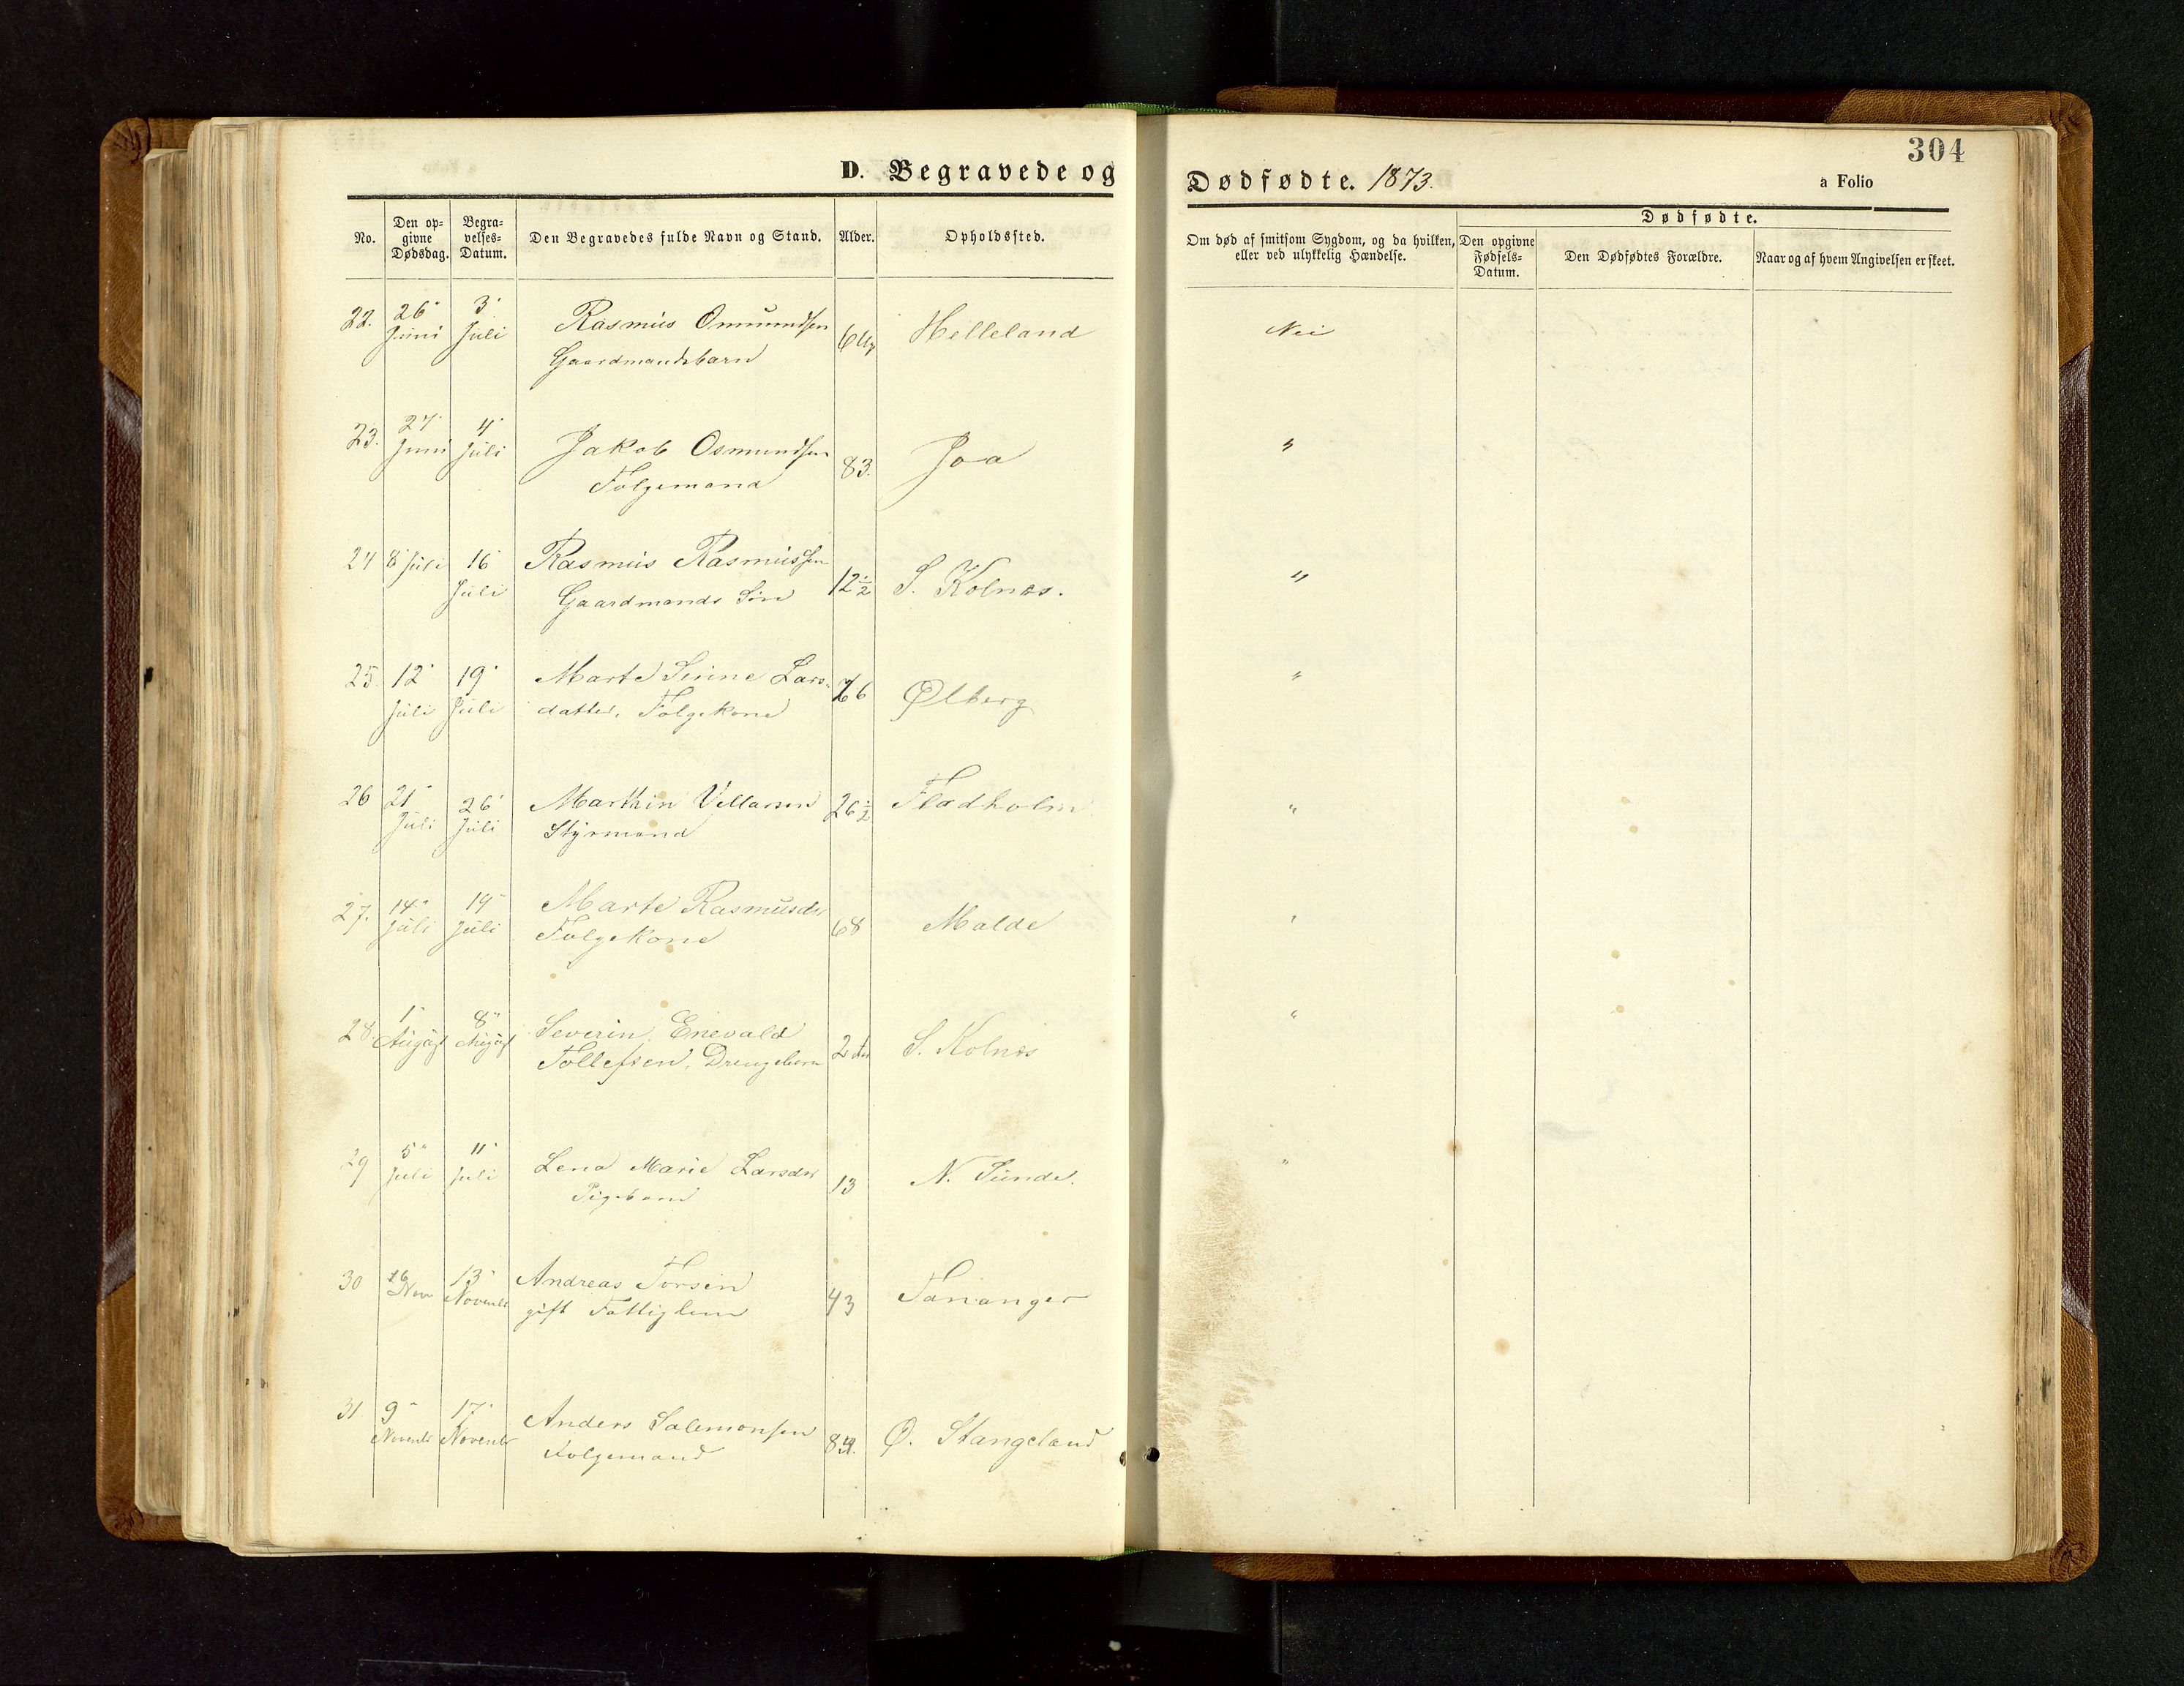 304
D. Begravede og Dødfødte. 1873.
a Folio
No.
Den op-
givne
Dødsdag.
Begra-
velses-
Datum.
Den Begravedes fulde Navn og Stand.
Alder.
Opholdssted.
Om død af smitsom Sygdom, og da hvilken,
eller ved ulykkelig Hændelse.
Dødfødte.
Den opgivne
Fødsels-
Datum.
Den Dødfødtes Forældre.
Naar og af hvem Angivelsen er skeet.
22. 26" 3"
Juni Juli Rasmus Ommundsen 6 Helleland Nei
Gaardmandsbarn
23. 27" 4" "
Juni Juli Jakob Osmundsen 83. Joa
Følgemand
24 8" Juli 16 Rasmus Rasmussen 12½ S. Kolnes. "
Juli Gaardmands Søn
25. 12" 19" Marte Serine Lars- 76 Ølberg "
Juli Juli datter, Følgekone
26 21" 26" Marthin Villarsen 26½ Fladholm "
Juli Juli Styrmand
27. 14" 19" Marte Rasmusdr 68 Malde "
Juli Juli Følgekone
28. 1" 8" Severin Enevald "
August August Tollefsen, Drengebarn 2 S. Kolnes
29 5" 11" Lena Marie Larsdr 13 N. Sunde. "
Juli Juli Pigebarn
30 Nov 13" Andreas Torsen 43 Tananger
Novembr gift Fattiglem
31 9" 17" Anders Salemonsen Ø. Stangeland
Novembr Novembr Folgemand